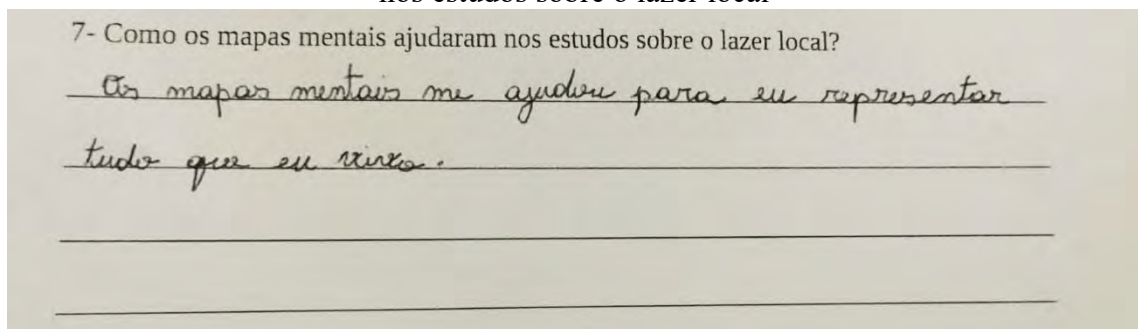 nos estudos sobre o lazer local
7- Como os mapas mentais ajudaram nos estudos sobre o lazer local?
Os mapas mentais me ajudou para eu representar
tudo que eu vivo.